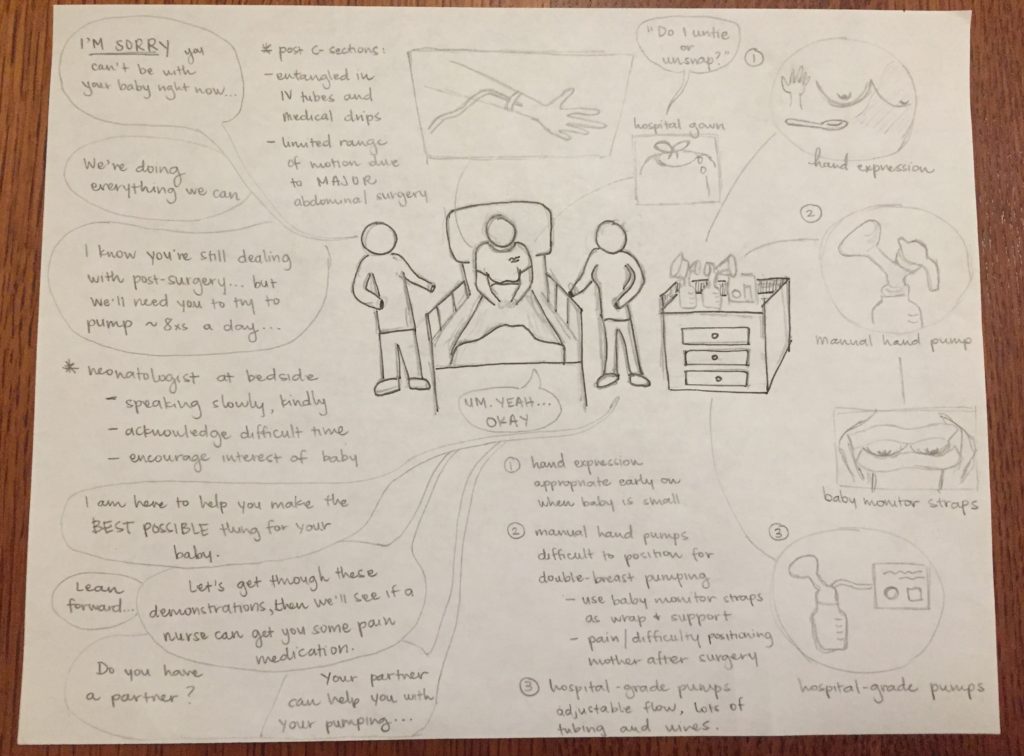 I'M SORRY you
can't be with
your baby right now...
We're doing
everything we can
I know you're still dealing
with post-surgery... but
we'll need you to try to
pump ~ 8xs a day...
* neonatologist at bedside
- speaking slowly, kindly
- acknowledge difficult time
- encourage interest of baby
I am here to help you make the
BEST POSSIBLE thing for your
baby.
Lean
forward...
Let's get through these
demonstrations, then we'll see if a
nurse can get you some pain
medication.
Do you have
a partner?
Your partner
can help you with
your pumping...
* post C-sections:
- entangled in
IV tubes and
medical drips
- limited range
of motion due
to MAJOR
abdominal surgery
"Do I untie
or
unsnap?"
hospital gown
UM. YEAH...
OKAY
① hand expression
appropriate early on
when baby is small
② manual hand pumps
difficult to position for
double-breast pumping
- use baby monitor straps
as wrap + support
- pain/difficulty positioning
mother after surgery
③ hospital-grade pumps
adjustable flow, lots of
tubing and wires.
①
hand expression
②
manual hand pump
baby monitor straps
③
hospital-grade pumps